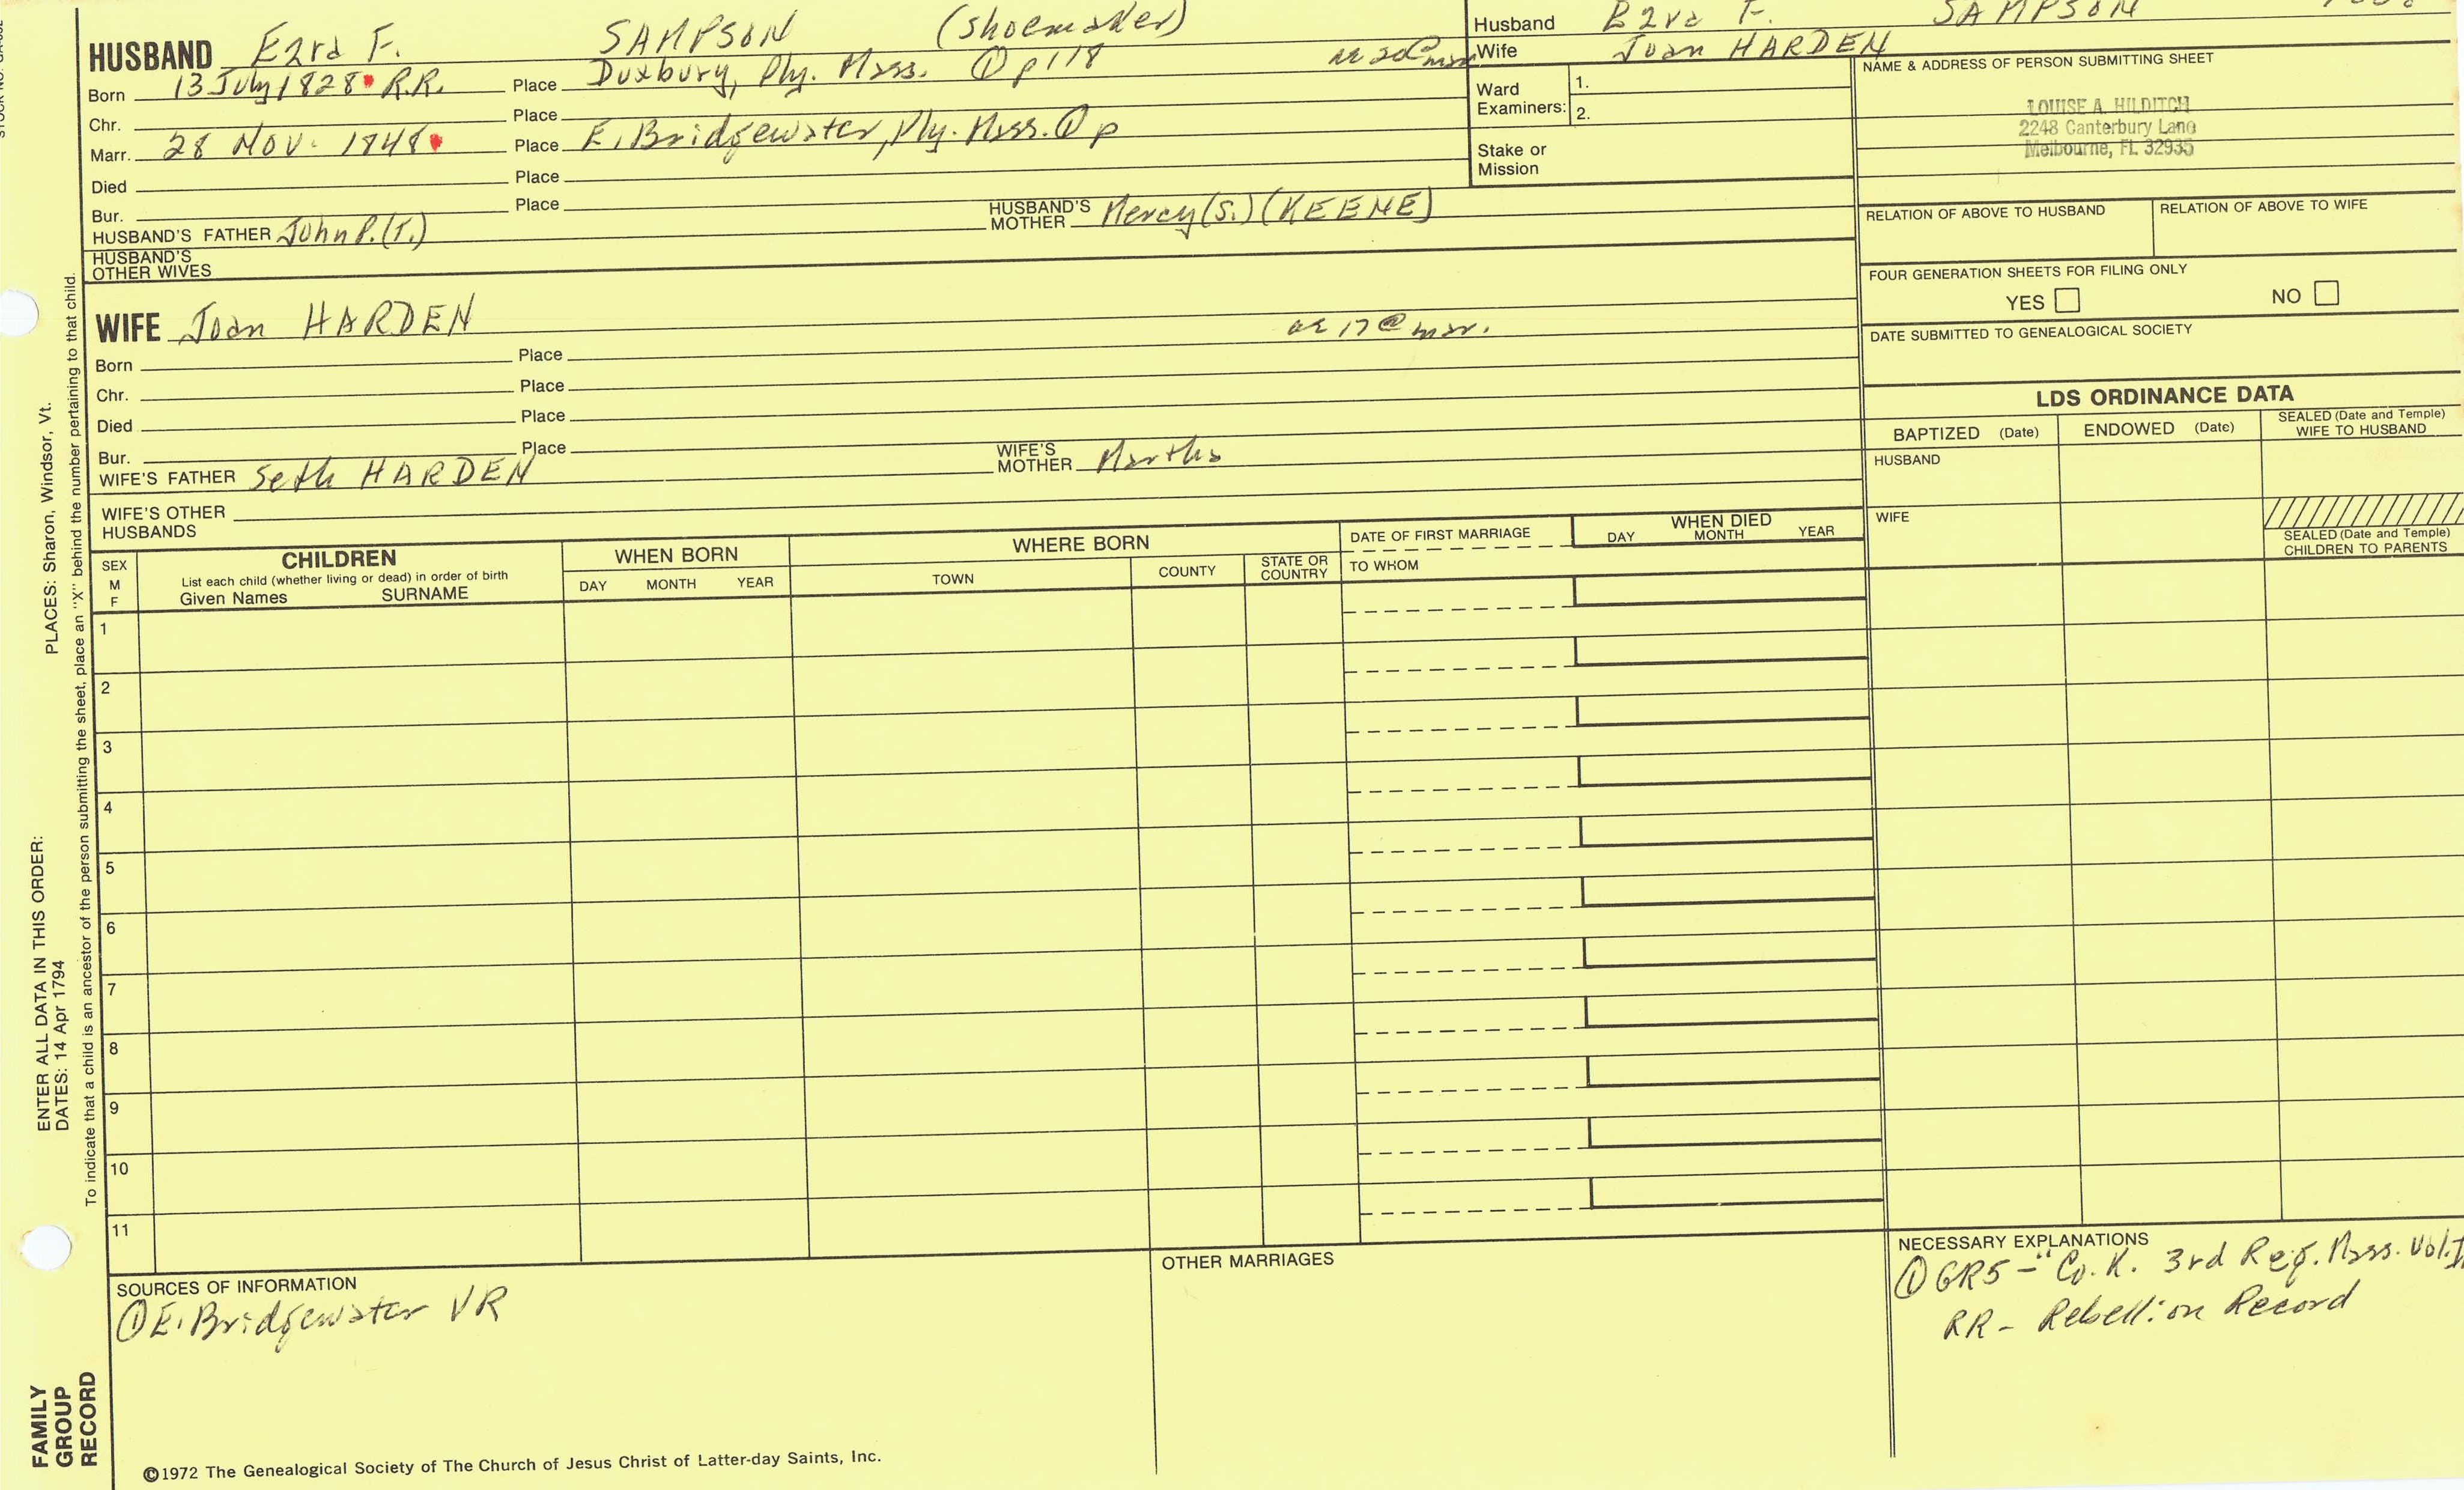 HUSBAND Ezra F. SAMPSON (Shoemaker)
Born 13 July 1828 R.R. Place Duxbury, Ply. Mass. ① p118
Chr. Place
Marr. 28 Nov. 1848 Place E. Bridgewater, Ply. Mass. ① p
Died Place
Bur. Place
HUSBAND'S FATHER John P. (T.) HUSBAND'S MOTHER Mercy (S.) (KEENE)
HUSBAND'S OTHER WIVES
WIFE Joan HARDEN ae 17 @ mar.
Born Place
Chr. Place
Died Place
Bur. Place
WIFE'S FATHER Seth HARDEN WIFE'S MOTHER Martha
WIFE'S OTHER HUSBANDS
Husband Ezra F. SAMPSON
Wife Joan HARDEN
Ward Examiners: 1.
2.
Stake or Mission
NAME & ADDRESS OF PERSON SUBMITTING SHEET
LOUISE A. HILDITCH
2248 Canterbury Lane
Melbourne, FL 32935
RELATION OF ABOVE TO HUSBAND RELATION OF ABOVE TO WIFE
FOUR GENERATION SHEETS FOR FILING ONLY
YES NO
DATE SUBMITTED TO GENEALOGICAL SOCIETY
LDS ORDINANCE DATA
BAPTIZED (Date) ENDOWED (Date) SEALED (Date and Temple) WIFE TO HUSBAND
HUSBAND
WIFE
SEALED (Date and Temple) CHILDREN TO PARENTS
SEX M F
CHILDREN
List each child (whether living or dead) in order of birth
Given Names SURNAME
WHEN BORN
DAY MONTH YEAR
WHERE BORN
TOWN COUNTY STATE OR COUNTRY
DATE OF FIRST MARRIAGE
TO WHOM
WHEN DIED
DAY MONTH YEAR
1
2
3
4
5
6
7
8
9
10
11
SOURCES OF INFORMATION
① E. Bridgewater VR
OTHER MARRIAGES
NECESSARY EXPLANATIONS
① GR5 - "Co. K. 3rd Reg. Mass. Vol.
RR - Rebellion Record
©1972 The Genealogical Society of The Church of Jesus Christ of Latter-day Saints, Inc.
FAMILY GROUP RECORD
ENTER ALL DATA IN THIS ORDER:
DATES: 14 Apr 1794
PLACES: Sharon, Windsor, Vt.
To indicate that a child is an ancestor of the person submitting the sheet, place an "X" behind the number pertaining to that child.